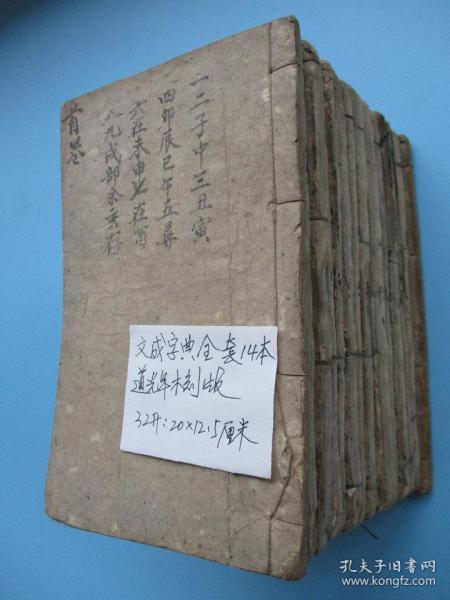 首卷
一二子中三丑寅
四卯辰巳午五寻
六在未申七在酉
八九戌部余亥存
文成字典全套14本
道光年木刻出版
32开:20×12.5厘米
孔夫子旧书网
www.kongfz.com